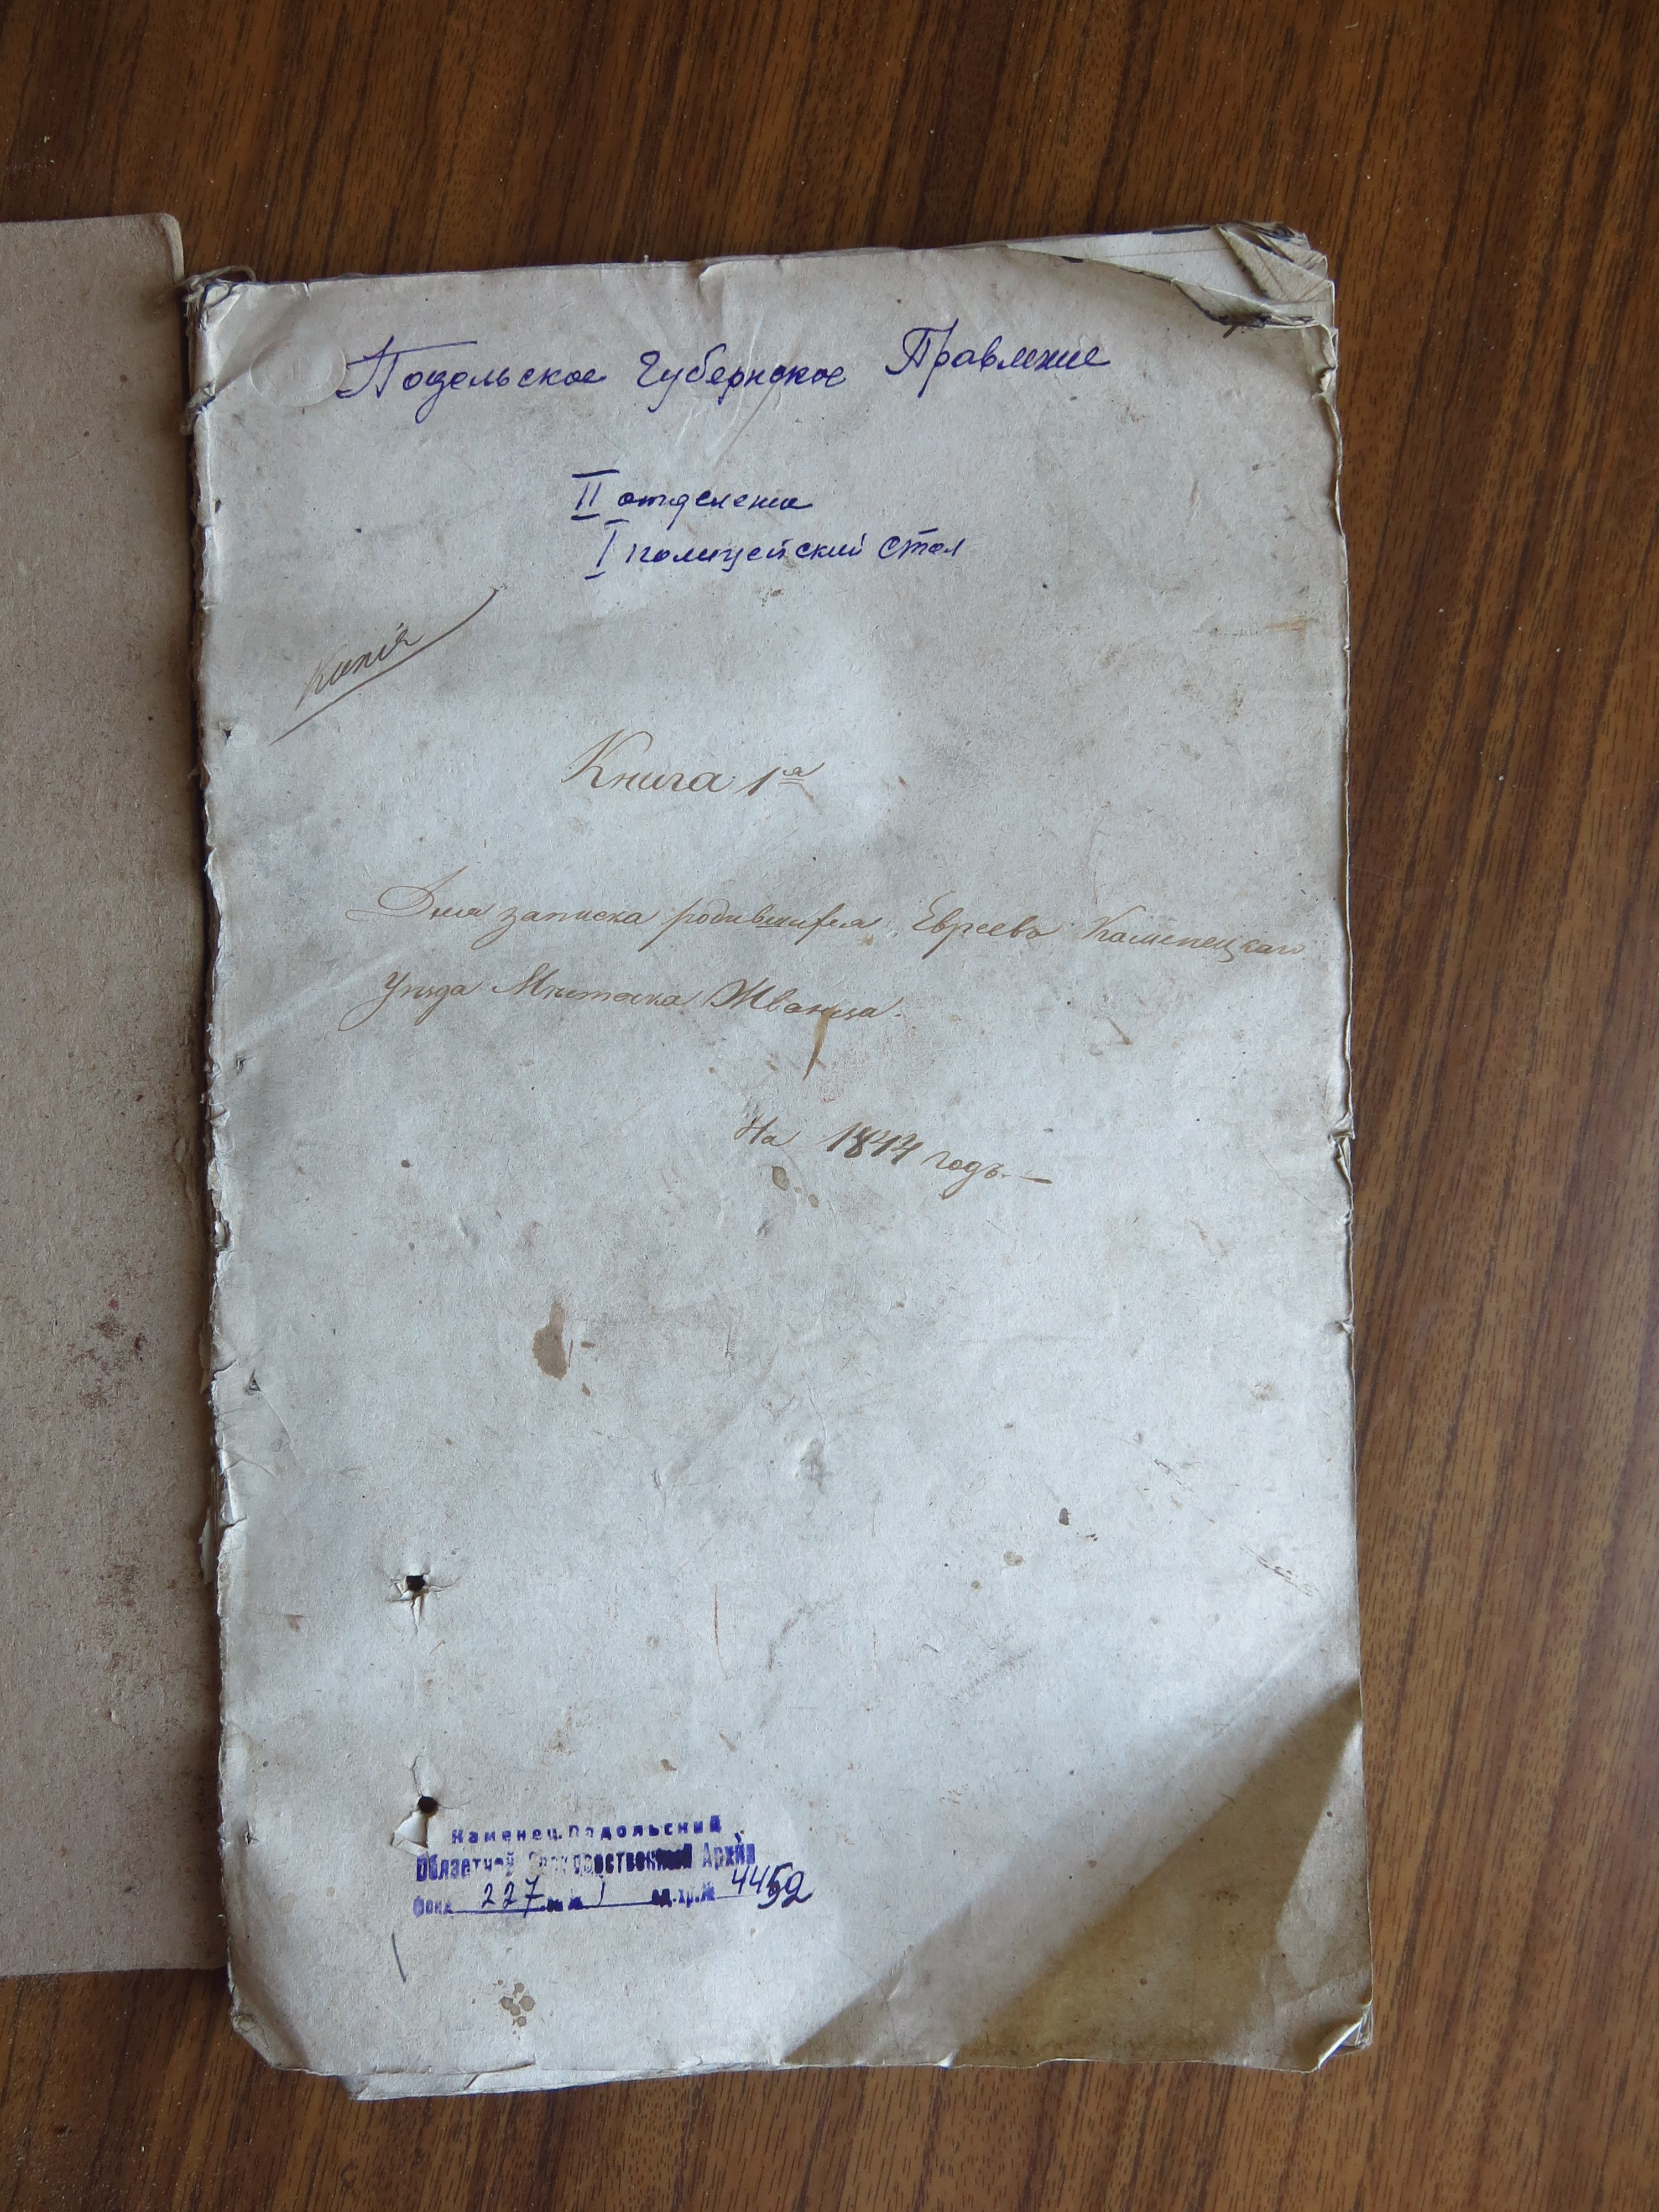 Подольское Губернское Правление
II отделение
I полицейский стол
Копія
Книга 1ª
Для записка родившихся Евреевъ Каменецкаго
Уѣзда Мѣстечка Жванца.
На 1844 годъ.—
Каменец.Подольский
Областной Государственный Архив
Фонд 227 оп. № 1 ед.хр.№ 4459